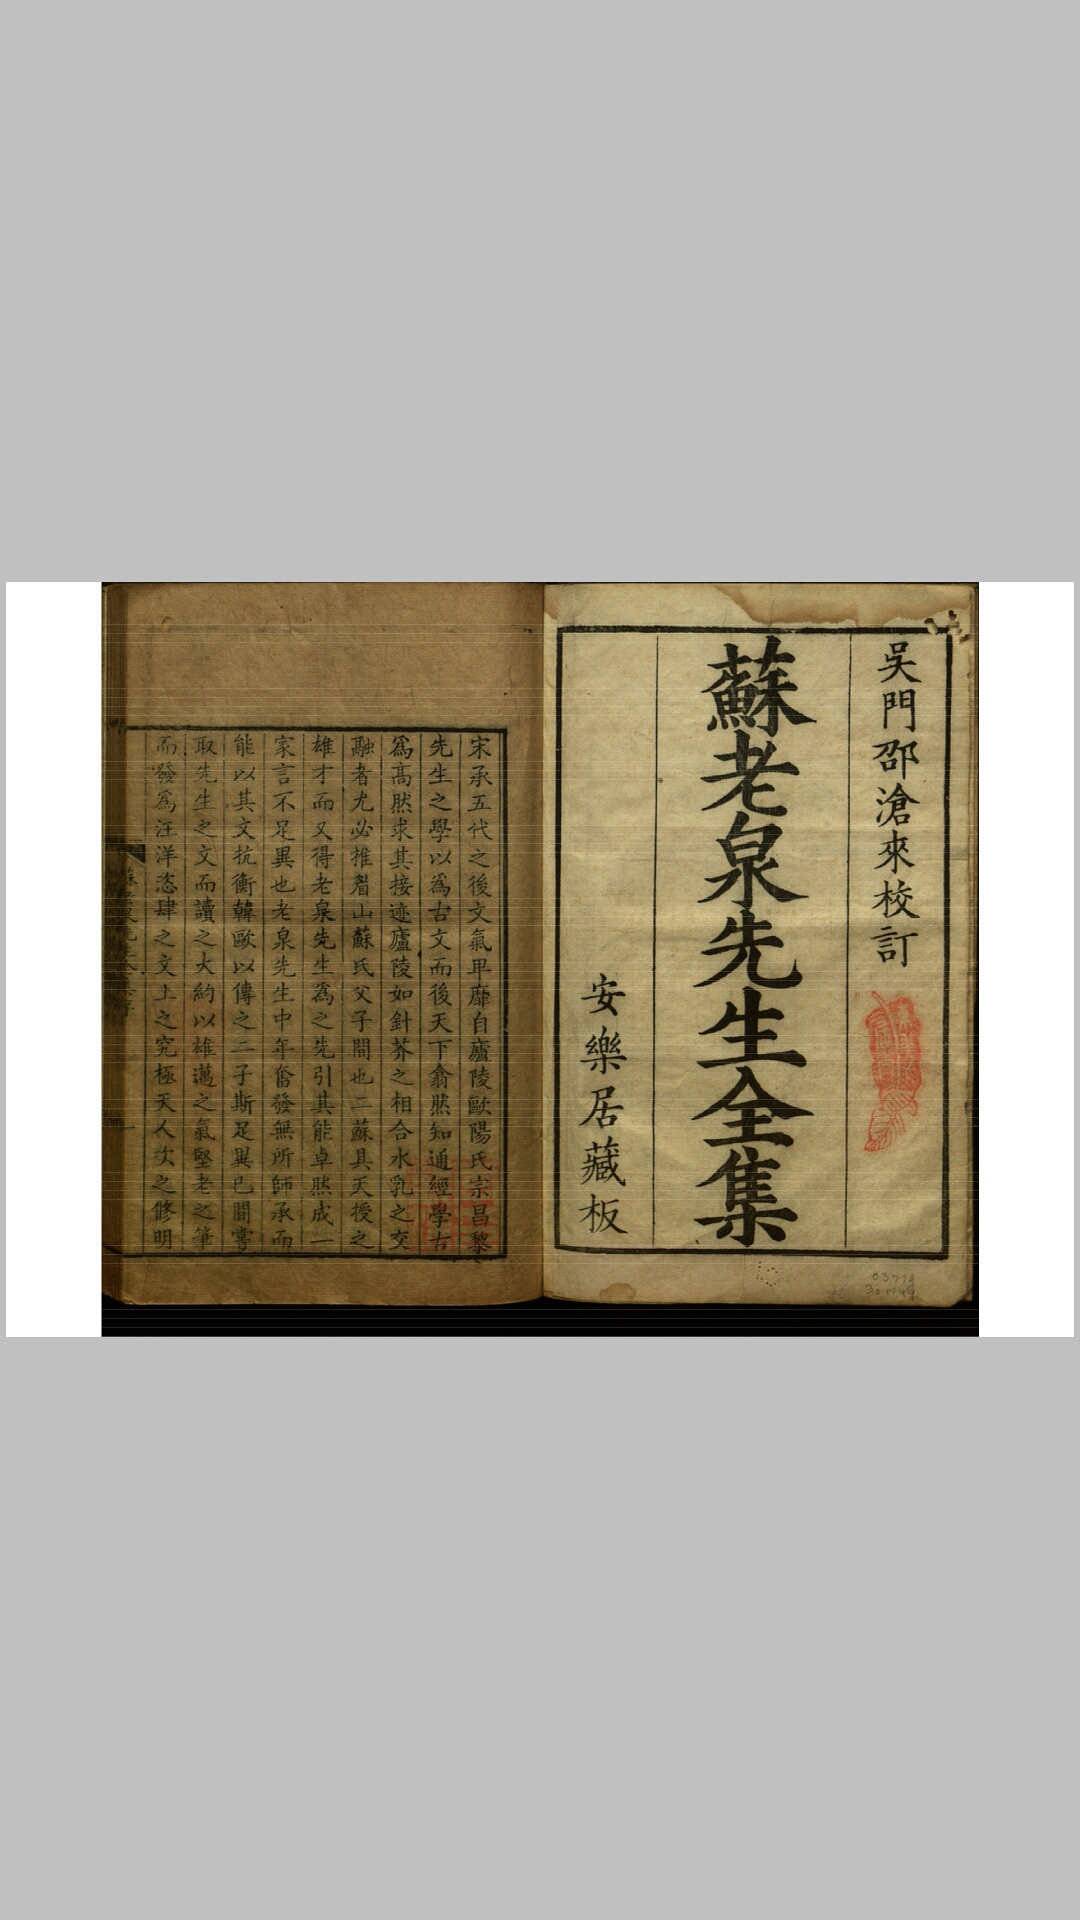 吳門邵滄來校訂
蘇老泉先生全集
安樂居藏板
宋承五代之後文氣卑靡自廬陵歐陽氏宗昌黎
先生之學以為古文而後天下翕然知通經學古
為高然求其接迹廬陵如針芥之相合水乳之交
融者尤必推眉山蘇氏父子間也二蘇具天授之
雄才而又得老泉先生為之先引其能卓然成一
家言不足異也老泉先生中年奮發無所師承而
能以其文抗衡韓歐以傳之二子斯足異已間嘗
取先生之文而讀之大約以雄邁之氣堅老之筆
而發為汪洋恣肆之文上之究極天人次之修明
蘇老泉先生全集序
一